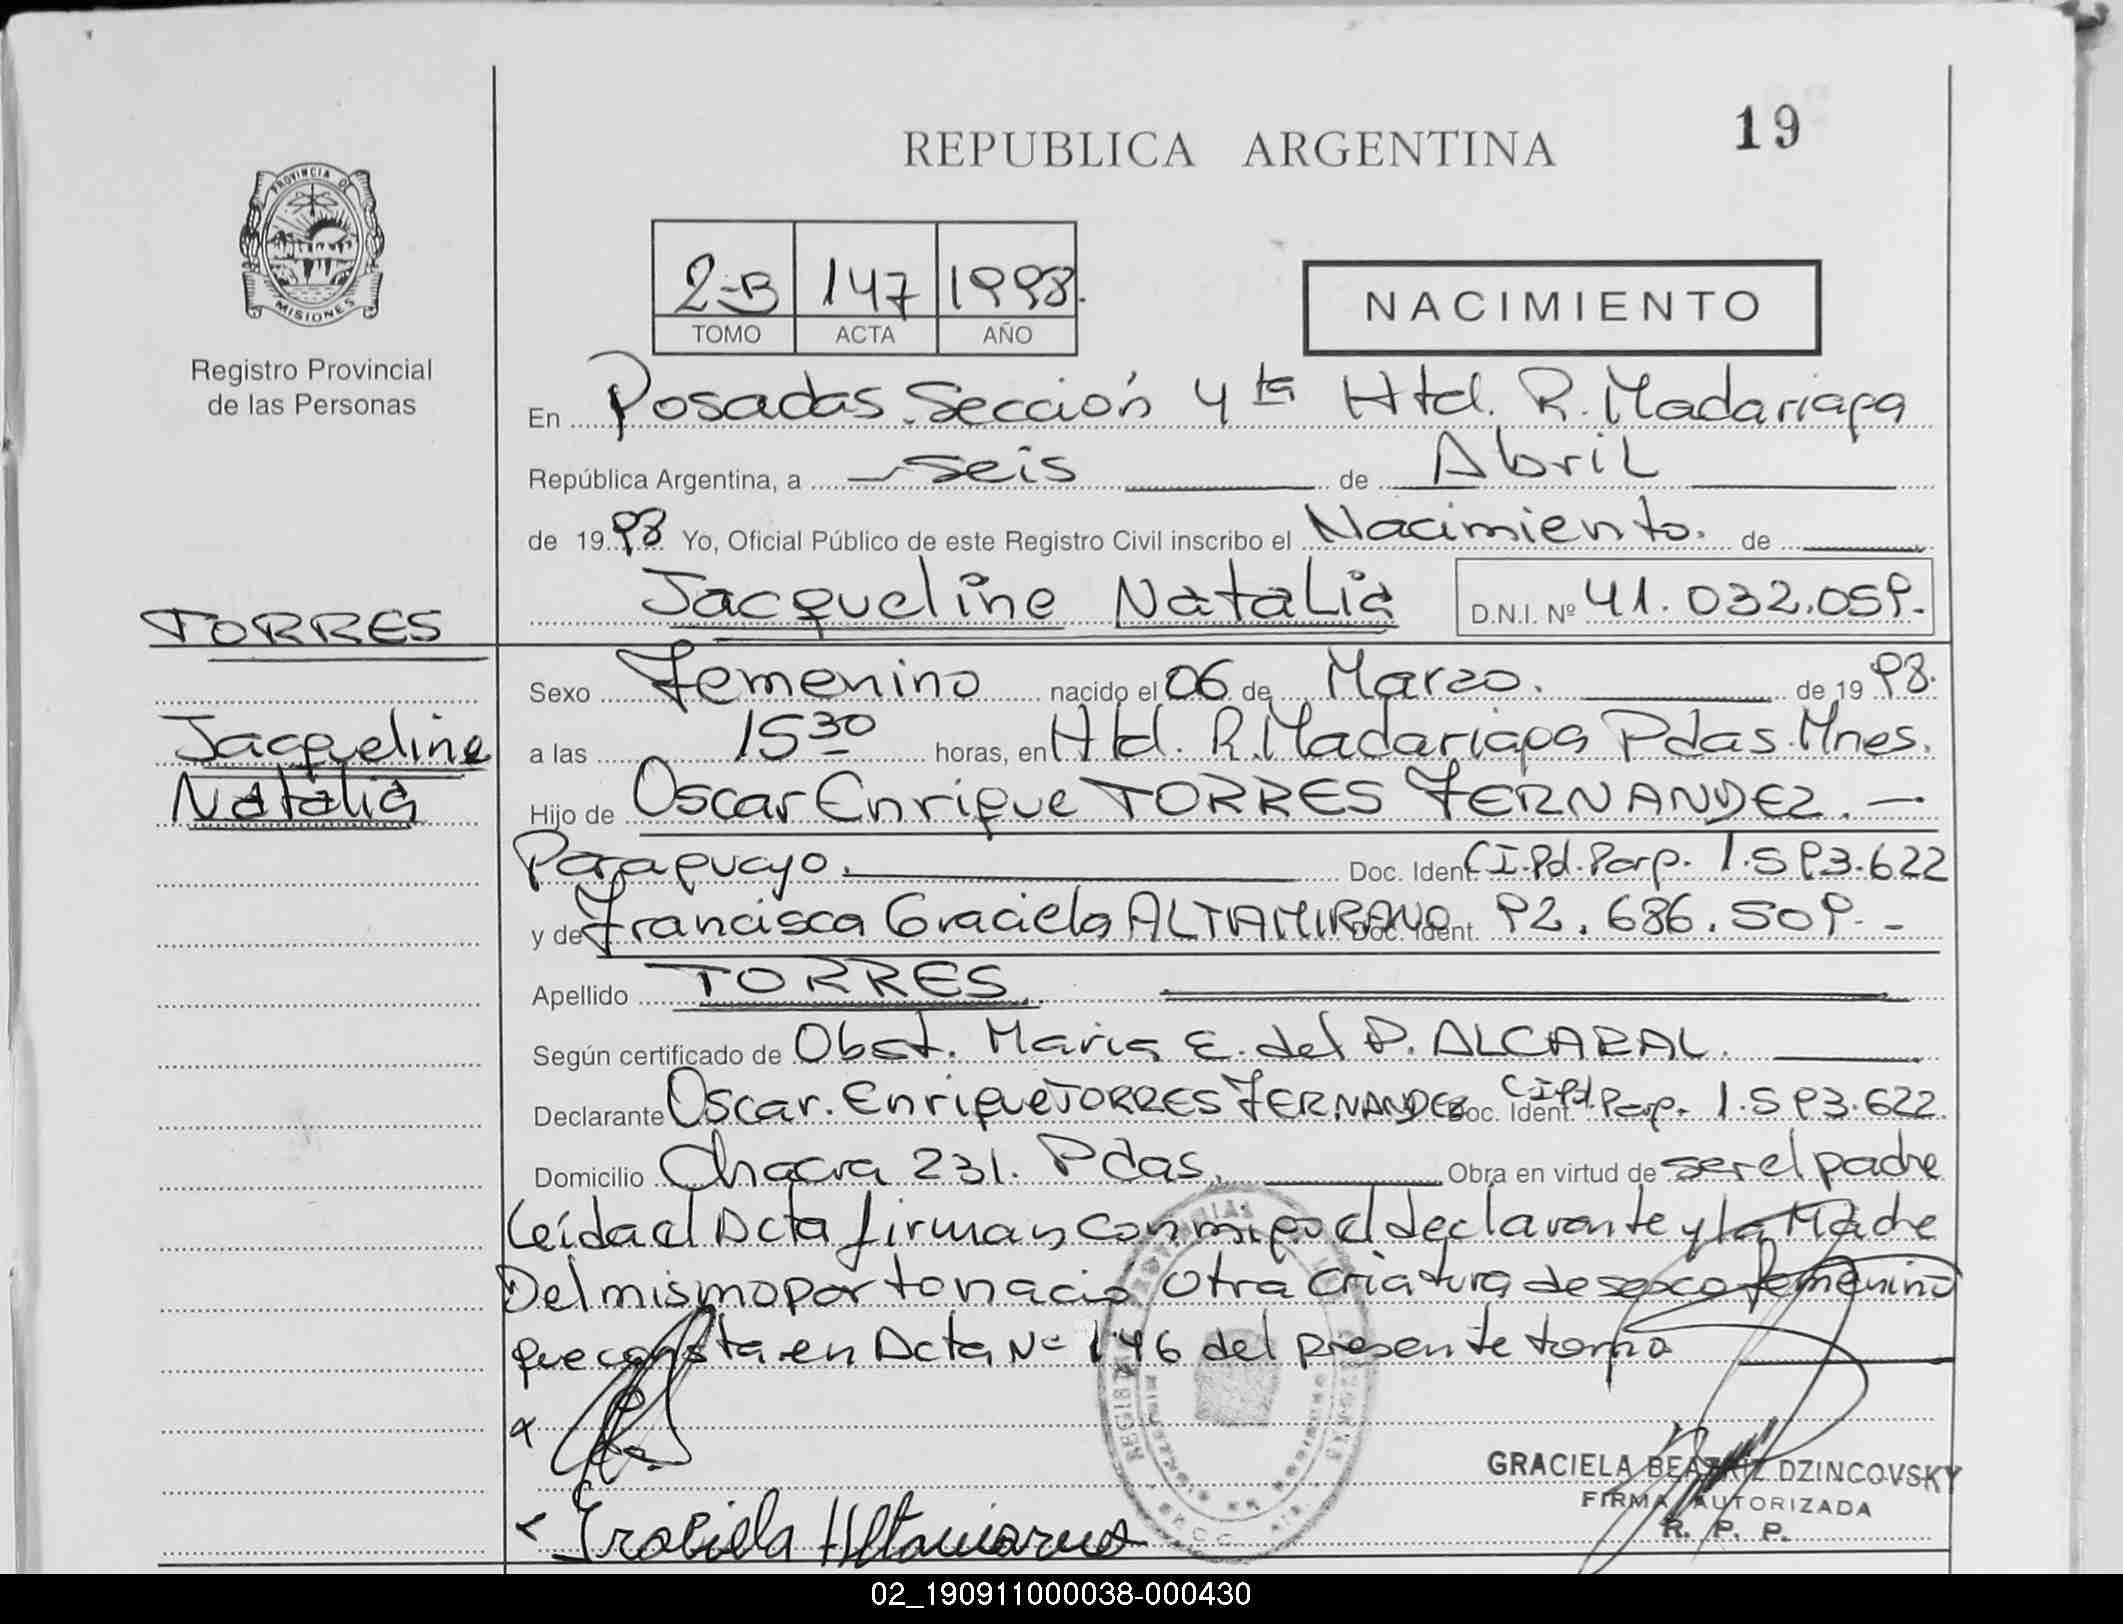 19
REPUBLICA ARGENTINA
PROVINCIA DE
MISIONES
Registro Provincial
de las Personas
2-B 147 1998.
TOMO ACTA AÑO
NACIMIENTO
En Posadas Sección 4ta Htal. R. Madariaga
República Argentina, a seis de Abril
de 1998 Yo, Oficial Público de este Registro Civil inscribo el Nacimiento. de
Jacqueline Natalia D.N.I. Nº 41.032.059.-
TORRES
Jacqueline
Natalia
Sexo Femenino nacido el 06 de Marzo. de 1998.
a las 15 30 horas, en Htal. R. Madariaga Pdas. Mnes.
Hijo de Oscar Enrique TORRES FERNANDEZ.-
Paraguayo. Doc. Ident. C.I. Pol. Parg. 1.593.622
y de Francisca Graciela ALTAMIRANO Doc. Ident. 92.686.509.-
Apellido TORRES
Según certificado de Obst. Maria E. del P. ALCARAL.
Declarante Oscar Enrique TORRES FERNANDEZ Doc. Ident. C.I. Pol. Parg. 1.593.622.
Domicilio Chacra 231. Pdas. Obra en virtud de ser el padre
Leída el Acta firman conmigo el declarante y la Madre
Del mismo parto nació otra criatura de sexo femenino
que consta en Acta Nº 146 del presente tomo
x
x Graciela Altamirano
GRACIELA BEATRIZ DZINCOVSKY
FIRMA AUTORIZADA
R. P. P.
02_190911000038-000430